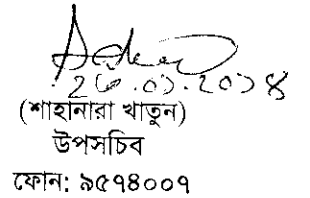 ২৬.০১.২০১৪
(শাহানারা খাতুন)
উপসচিব
ফোন: ৯৫৭৪০০৭